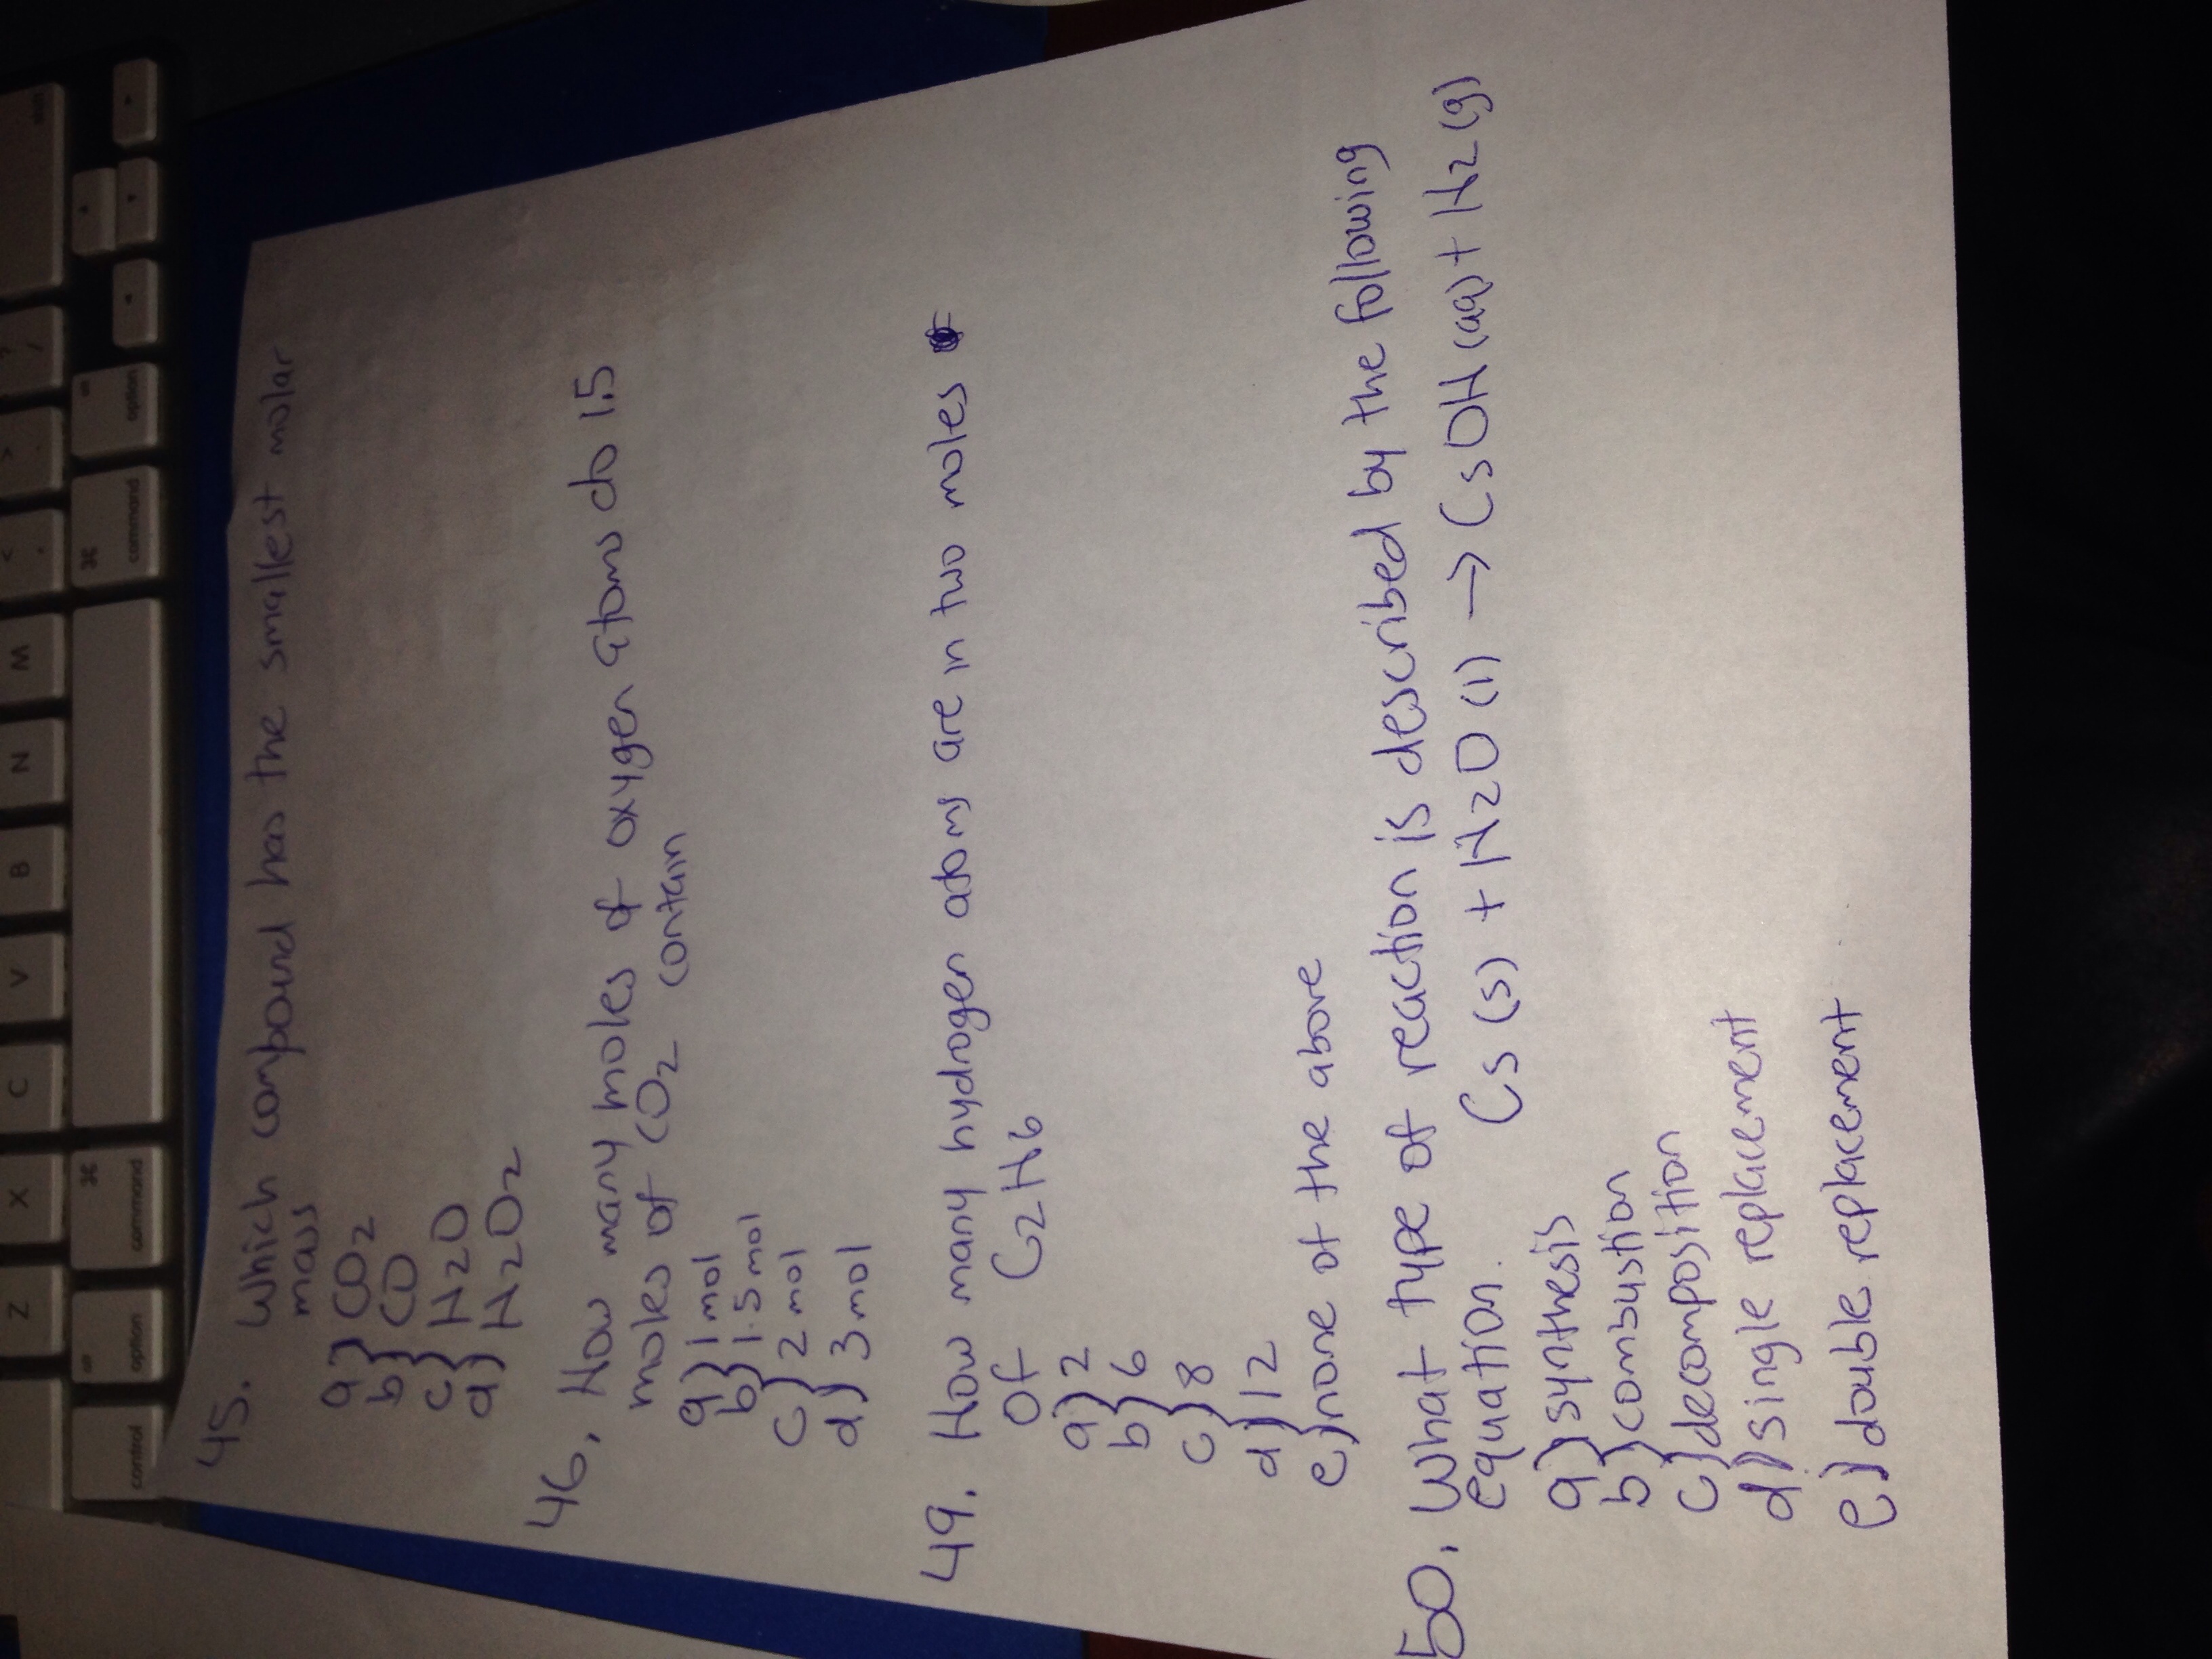 Z X C V B N M < > ?
. . /
alt ⌘ ⌘ alt
control option command command option
45. Which compound has the smallest molar
mass
a) CO2
b) CO
c) H2O
d) H2O2
46. How many moles of oxygen atoms do 1.5
moles of CO2 contain
a) 1 mol
b) 1.5 mol
c) 2 mol
d) 3 mol
49. How many hydrogen atoms are in two moles
of C2H6
a) 2
b) 6
c) 8
d) 12
e) none of the above
50. What type of reaction is described by the following
equation. Cs (s) + H2O (l) → CsOH (aq) + H2 (g)
a) synthesis
b) combustion
c) decomposition
d) single replacement
e) double replacement